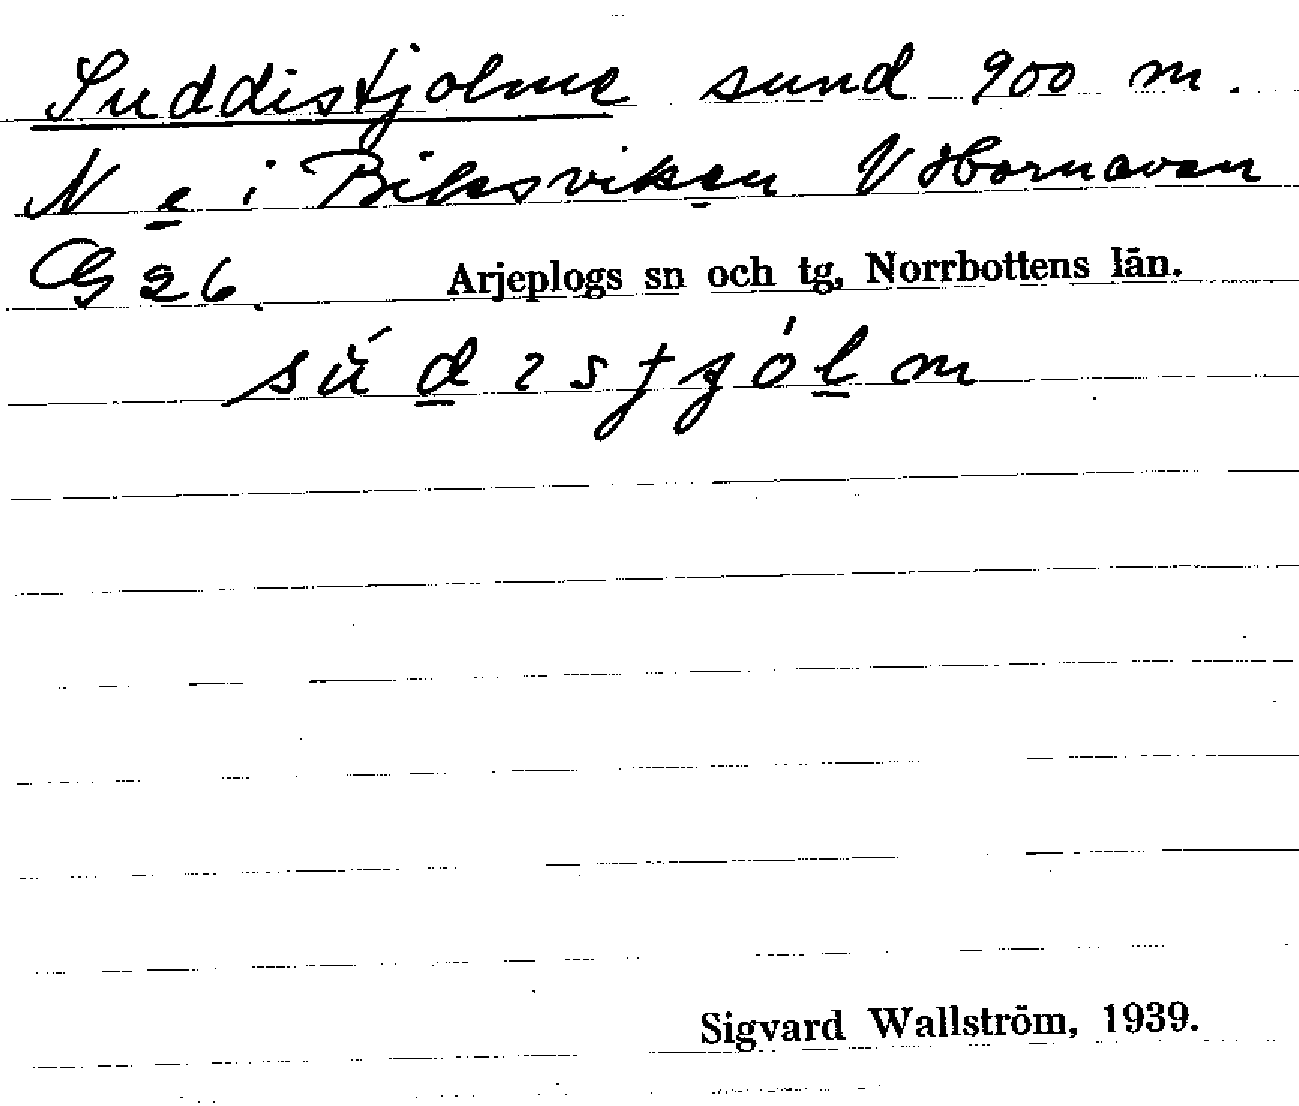 Suddistjolme sund 900 m.
N e i Biksviken V Hornavan
G 26. Arjeplogs sn och tg, Norrbottens län.
sŭ́ d ı s t j ó l m
Sigvard Wallström, 1939.